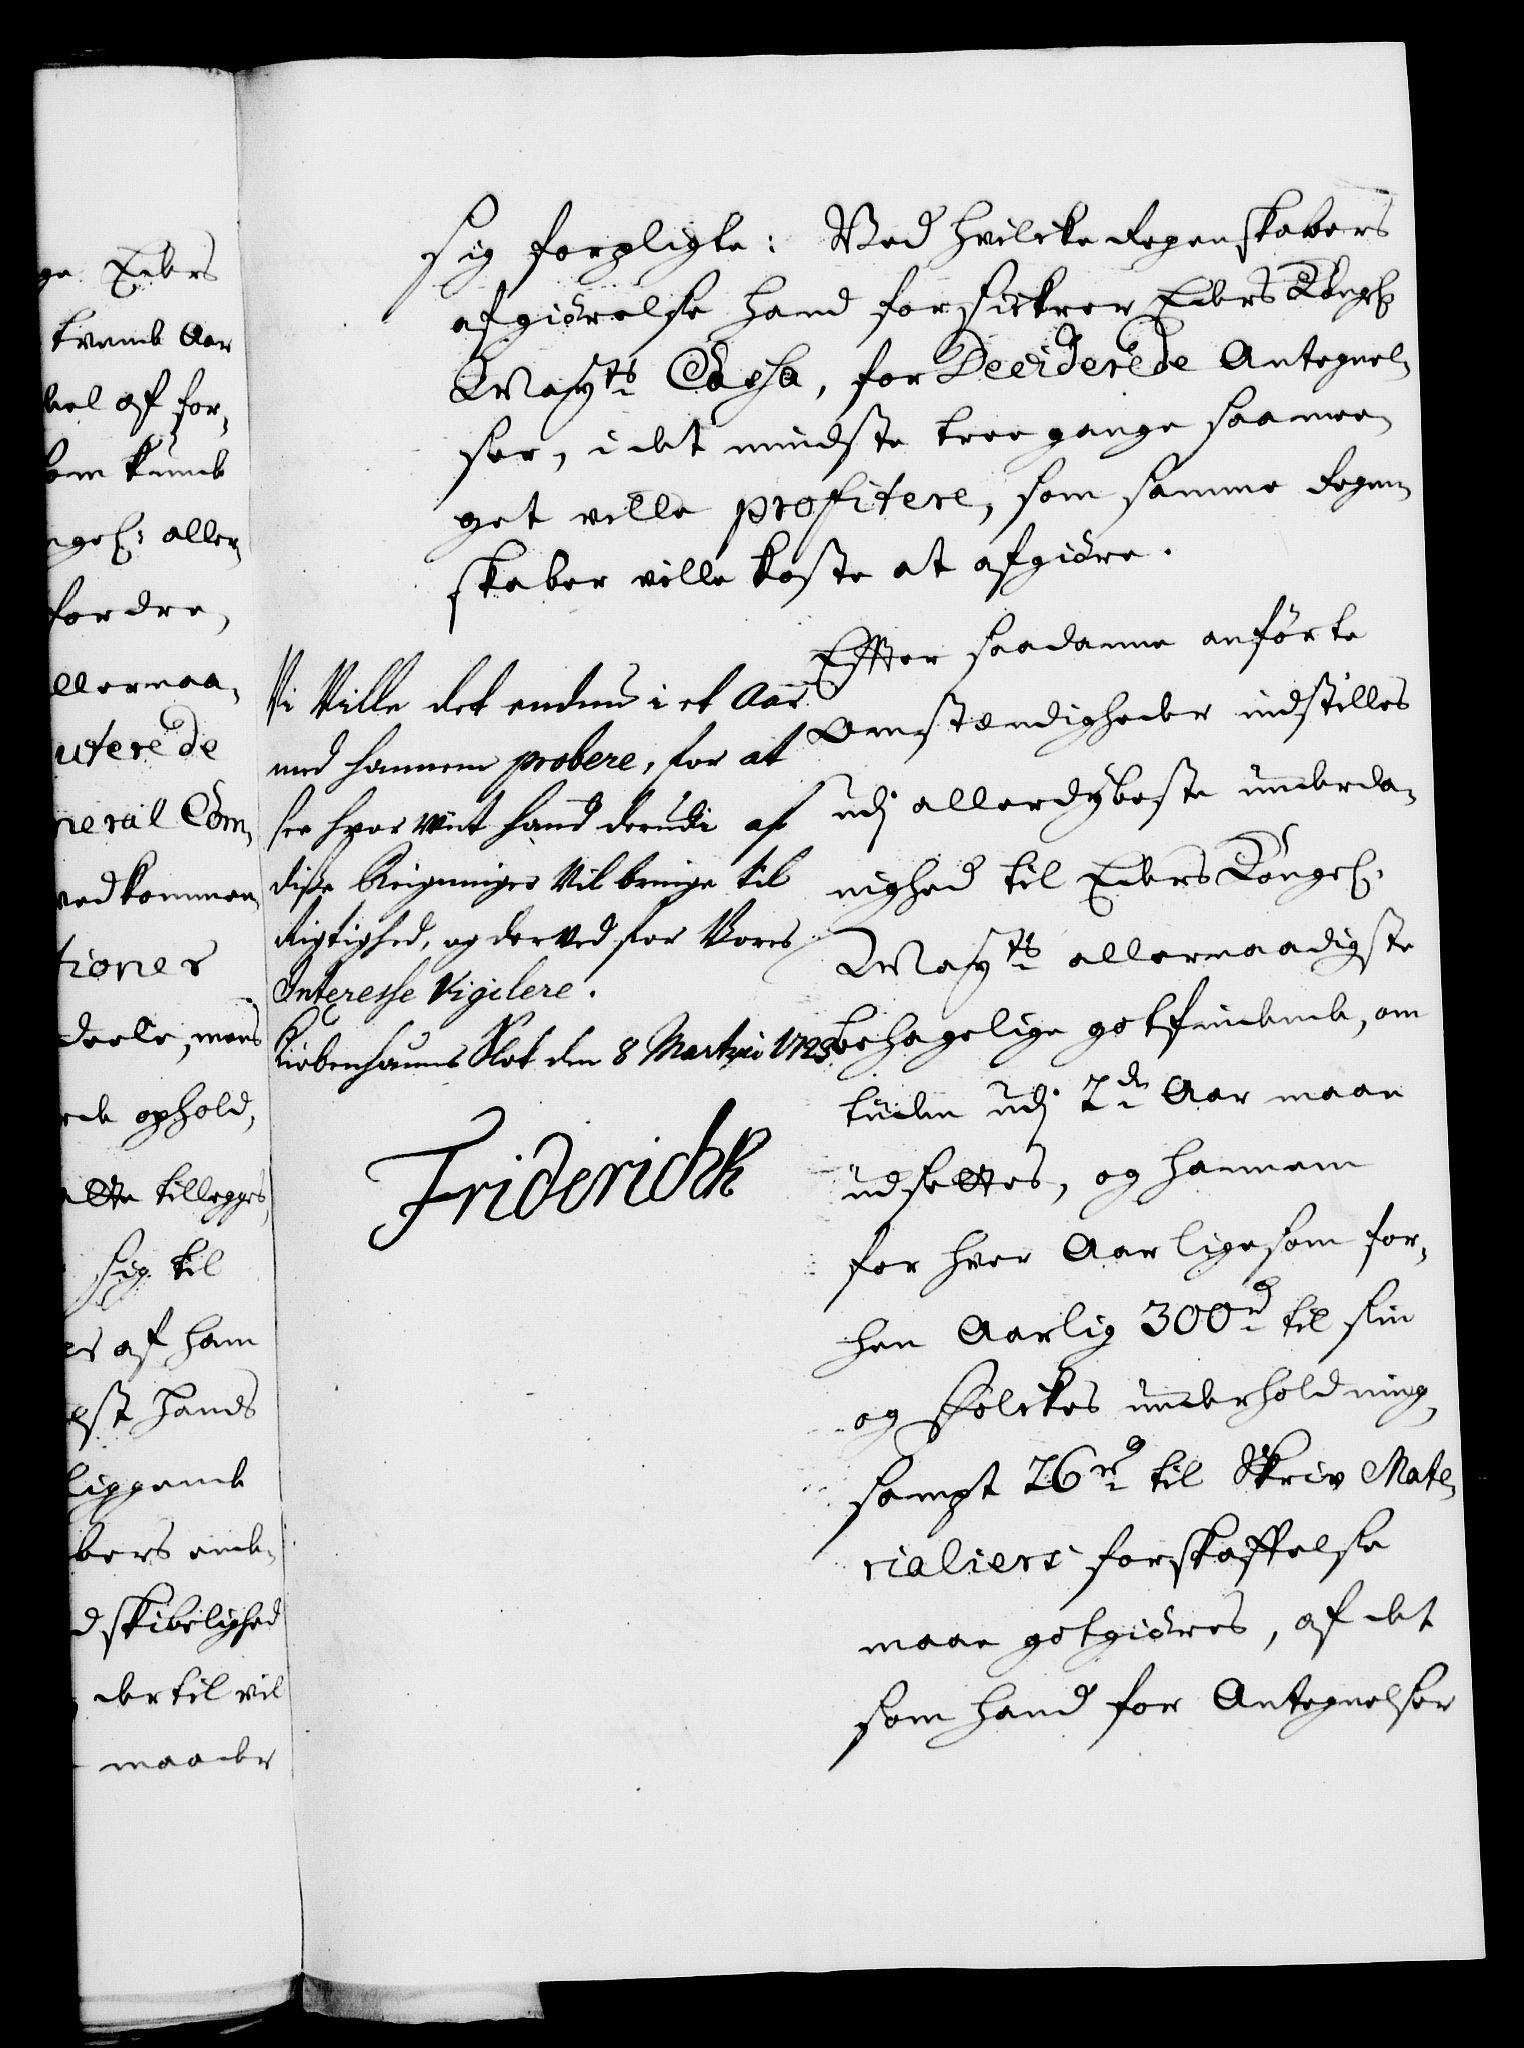 sig forpligte: Ved hvilcke Regenskabers
afgiörelse hand forsickrer Eders Kongl:
May:ts Cassa, for Deciderede Antegnel-
ser, i det mindste tree gange saa mee-
get ville profitere, som samme Regen-
skaber ville koste at afgiöre.
Effter saadanne anförte
omstændigheder indstilles
udj allerdybeste underda-
nighed til Eders Kongel:
May:ts allernaadigste
behagelige gotfindende, om
tiiden udj 2de Aar maae
udsettes, og hannem
for hver Aar ligesom for-
hen Aarlig 300rd til sin
og Folckes underholdning,
sampt 26rd til Skriv Mate-
rialiers forskaffelse
maae gotgiöres, af det
som hand for Antegnelser
Vi Ville det endnu i et Aar
med hannem probere, for at
see hvor vit hand derudi af
disse Reigninger Vil bringe til
Rigtighed, og derved for Vores
Interesse Vigilere.
Kiöbenhauns Slot den 8 Martzii 1723.
Friderich R
ge Eders
tvende Aar
deel af for-
som kunde
ngel: aller-
fordre,
llernaa-
uterede
neral Com-
vedkommen-
tioner
deele, mens
ophold,
ette tillegges,
sig til
af ham
Hands
lippende
bers ende-
dskibelighed
dertil vil
maader